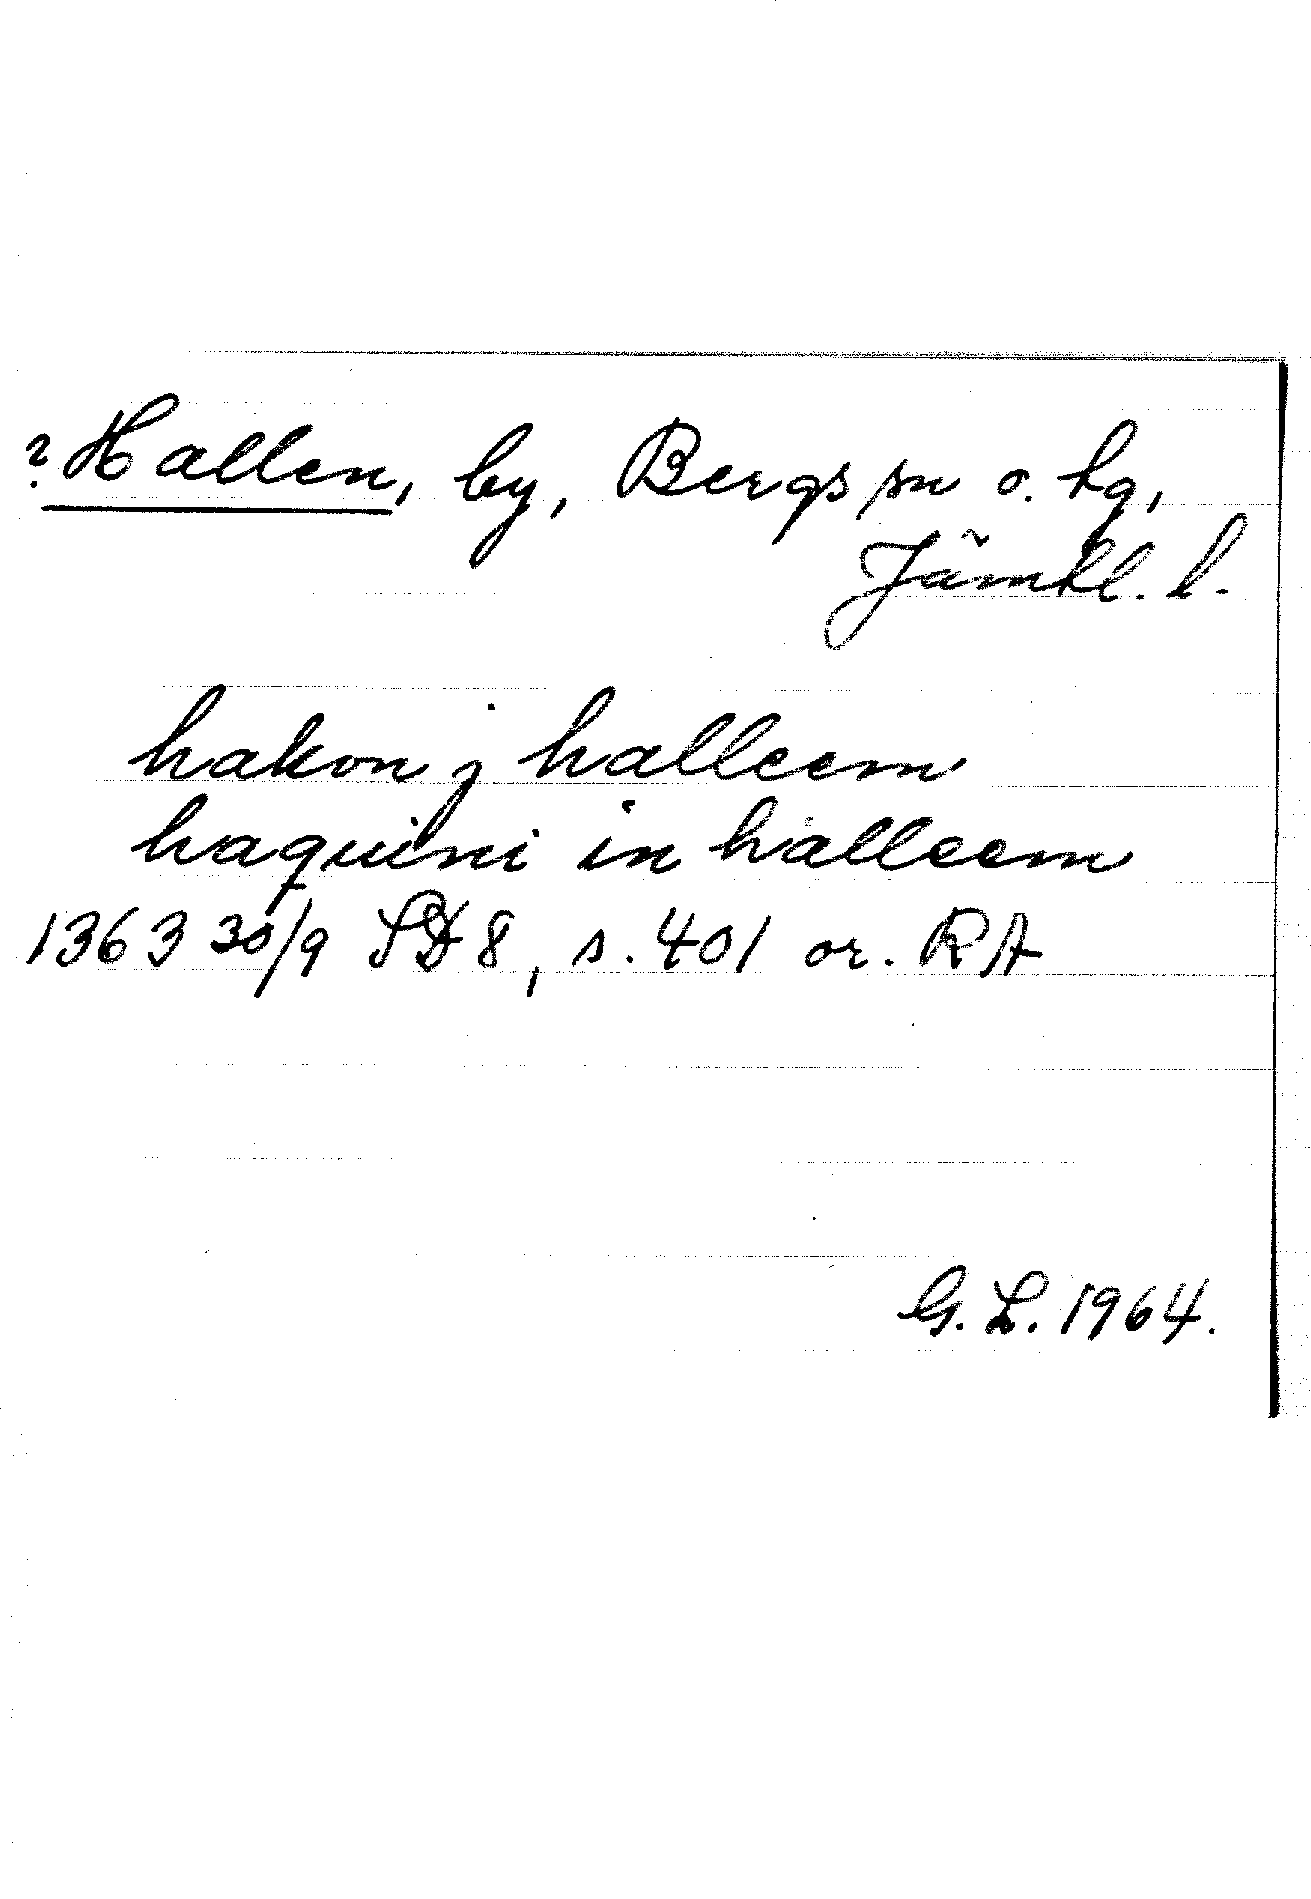 ? Hallen, by, Bergs sn o. hg,
Jämtl. l.
hakon j halleem
haquini in halleem
1363 30/9 SD 8, s. 401 or. RA
G. L. 1964.